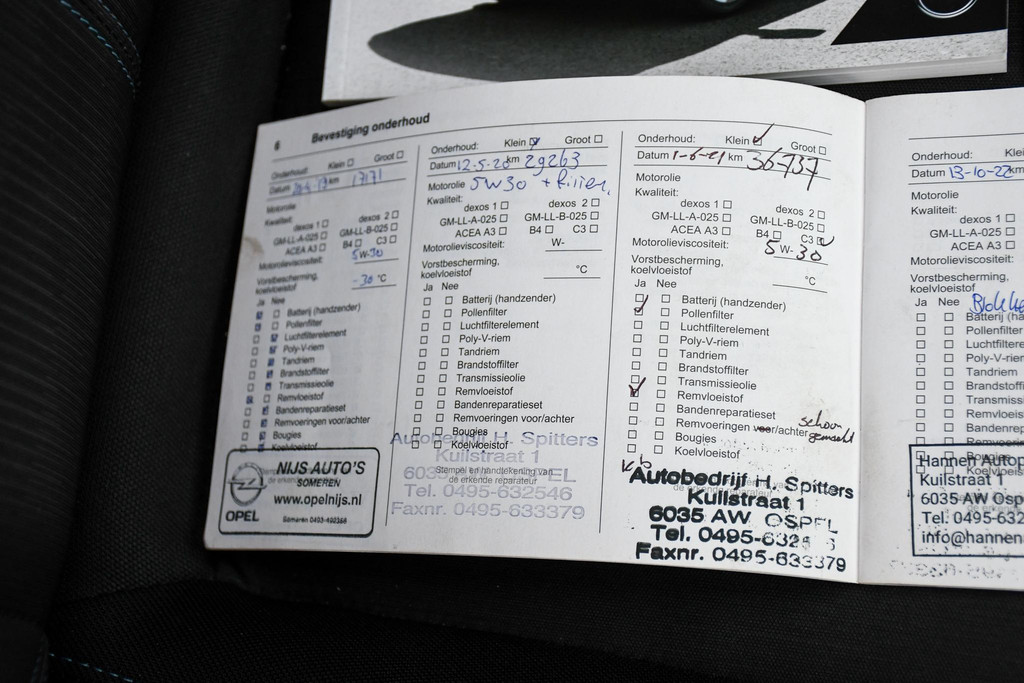 6 Bevestiging onderhoud
Onderhoud: Klein Groot
Datum km 17171
Motorolie
Kwaliteit:
dexos 1 dexos 2
GM-LL-A-025 GM-LL-B-025
ACEA A3 B4 C3
Motorolieviscositeit: 5W-30
Vorstbescherming,
koelvloeistof -30 °C
Ja Nee
Batterij (handzender)
Pollenfilter
Luchtfilterelement
Poly-V-riem
Tandriem
Brandstoffilter
Transmissieolie
Remvloeistof
Bandenreparatieset
Remvoeringen voor/achter
Bougies
Koelvloeistof
NIJS AUTO'S
SOMEREN
www.opelnijs.nl
OPEL
Onderhoud: Klein Groot
Datum 12-5-20 km 29263
Motorolie 5W30 + filter
Kwaliteit:
dexos 1 dexos 2
GM-LL-A-025 GM-LL-B-025
ACEA A3 B4 C3
Motorolieviscositeit: W-
Vorstbescherming,
koelvloeistof °C
Ja Nee
Batterij (handzender)
Pollenfilter
Luchtfilterelement
Poly-V-riem
Tandriem
Brandstoffilter
Transmissieolie
Remvloeistof
Bandenreparatieset
Remvoeringen voor/achter
Bougies
Koelvloeistof
Autobedrijf H. Spitters
Kuilstraat 1
Stempel en handtekening van
de erkende reparateur
Tel. 0495-632546
Faxnr. 0495-633379
Onderhoud: Klein Groot
Datum 1-6-21 km 36-737
Motorolie
Kwaliteit:
dexos 1 dexos 2
GM-LL-A-025 GM-LL-B-025
ACEA A3 B4 C3
Motorolieviscositeit: 5W-30
Vorstbescherming,
koelvloeistof °C
Ja Nee
Batterij (handzender)
Pollenfilter
Luchtfilterelement
Poly-V-riem
Tandriem
Brandstoffilter
Transmissieolie
Remvloeistof
Bandenreparatieset
Remvoeringen voor/achter schoon gemaakt
Bougies
Koelvloeistof
Autobedrijf H. Spitters
Kuilstraat 1
6035 AW OSPEL
Tel. 0495-632
Faxnr. 0495-633379
Onderhoud: Klei
Datum 13-10-22 km
Motorolie
Kwaliteit:
dexos 1
GM-LL-A-025
ACEA A3
Motorolieviscositeit:
Vorstbescherming,
koelvloeistof
Ja Nee
Batterij (ha
Pollenfilter
Luchtfiltere
Poly-V-rie
Tandriem
Brandstof
Transmiss
Remvloeis
Bandenrep
Remvoerin
Bougies
Koelvloeis
Hannen Autop
Kuilstraat 1
6035 AW Osp
Tel. 0495-632
info@hannen